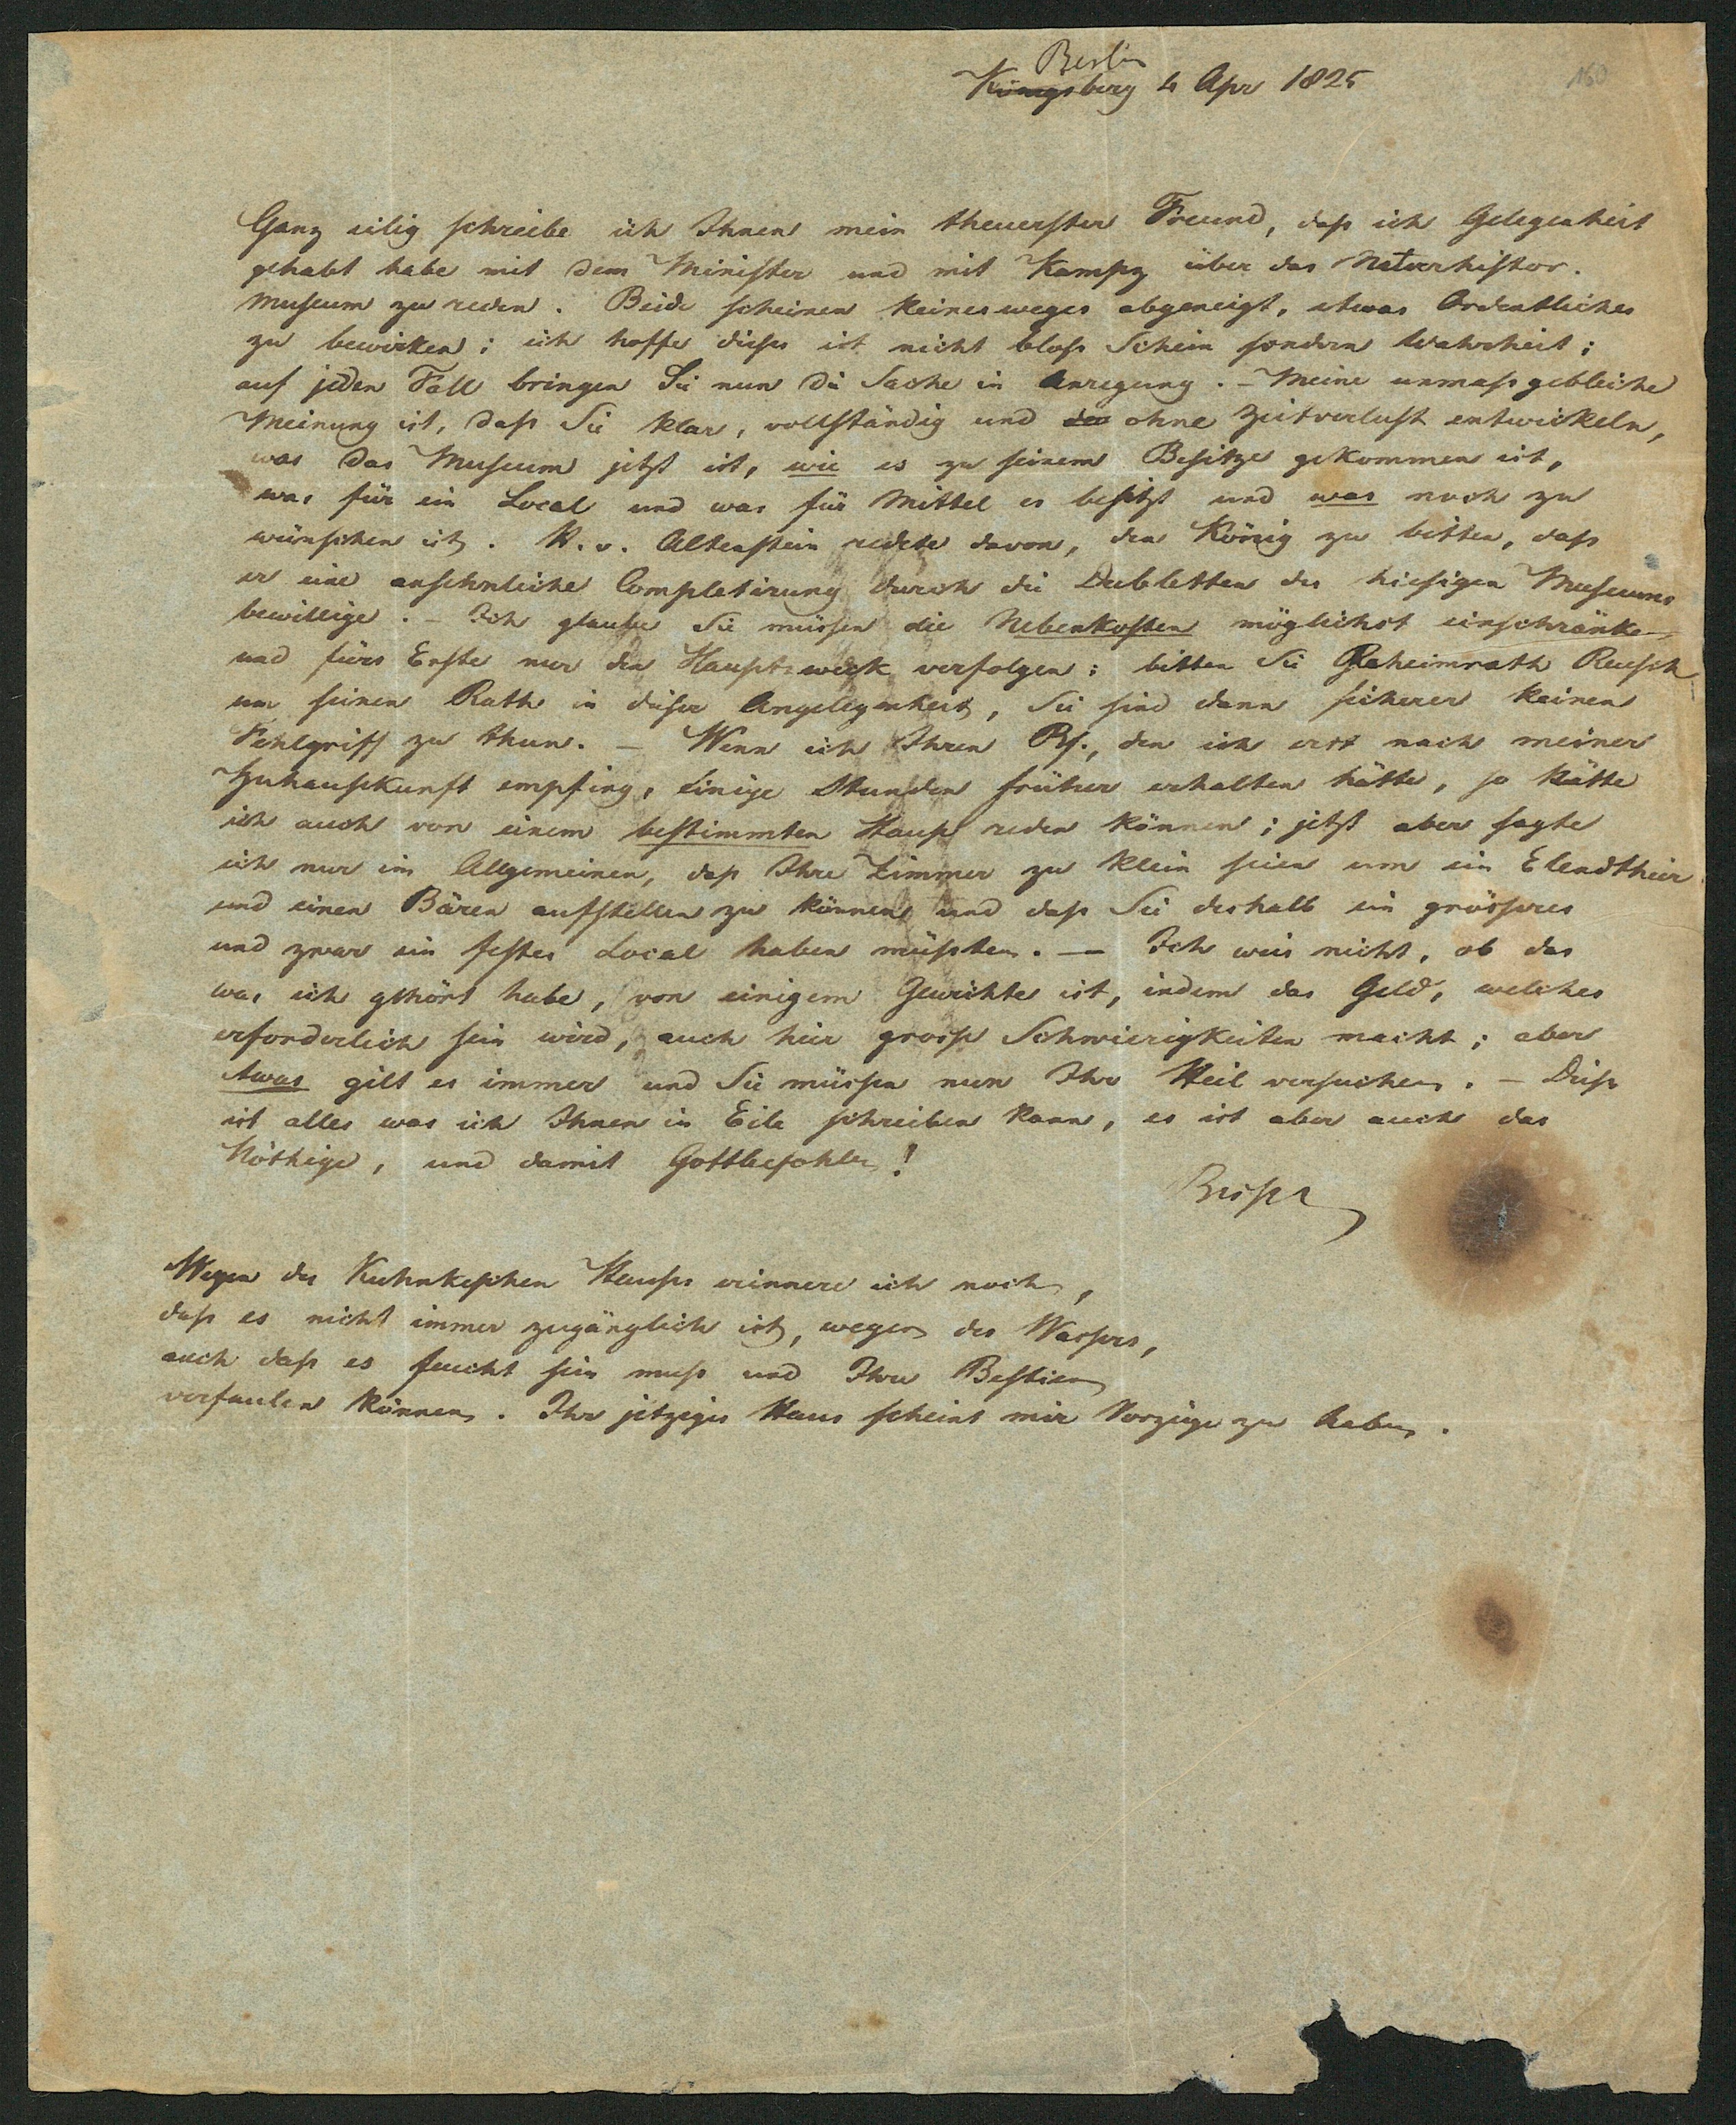 160
Berlin
Königsberg 4 Apr 1825
Ganz eilig schreibe ich Ihnen mein theuerster Freund, daß ich Gelegenheit
gehabt habe mit dem Minister und mit Kampz über das Naturhistor.
Museum zu reden. Beide scheinen keinesweges abgeneigt, etwas Ordentliches
zu bewirken; ich hoffe dieses ist nicht bloß Schein sondern Wahrheit;
auf jeden Fall bringen Sie nun die Sache in Anregung. – Meine unmaßgebliche
Meinung ist, daß Sie klar, vollständig und ohne Zeitverlust entwickeln,
was das Museum jetzt ist, wie es zu seinem Besitze gekommen ist,
was für ein Local und was für Mittel es besitzt und was noch zu
wünschen ist. H. v. Altenstein redete davon, den König zu bitten, daß
er eine ansehnliche Completirung durch die Dubletten des hiesigen Museums
bewillige. – Ich glaube Sie müssen die Nebenkosten möglichst einschränken
und fürs Erste nur den Hauptzweck verfolgen; bitten Sie Geheimrath Reusch
um seinen Rath in dieser Angelegenheit, Sie sind dann sicherer keinen
Fehlgriff zu thun. – Wenn ich Ihren Bf., den ich erst nach meiner
Zuhausekunft empfing, einige Stunden früher erhalten hätte, so hätte
ich auch von einem bestimmten Hause reden können; jetzt aber sagte
ich nur im Allgemeinen, daß Ihre Zimmer zu klein seien um ein Elendthier
und einen Bären aufstellen zu können und daß Sie deshalb ein größeres
und zwar ein festes Local haben müßten. – Ich weis nicht, ob das
was ich gehört habe, von einigem Gewichte ist, indem das Geld, welches
erforderlich sein wird, auch hier große Schwierigkeiten macht; aber
etwas gilt es immer und Sie müssen nun Ihr Heil versuchen. – Dieß
ist alles was ich Ihnen in Eile schreiben kann, es ist aber auch das
Nöthige, und damit Gottbefohlen!
Bessel
Wegen des Kuhnkeschen Hauses erinnere ich noch,
daß es nicht immer zugänglich ist, wegen des Wassers,
auch daß es feucht sein muß und Ihre Bestien
verfaulen können. Ihr jetziges Haus scheint mir Vorzüge zu haben.